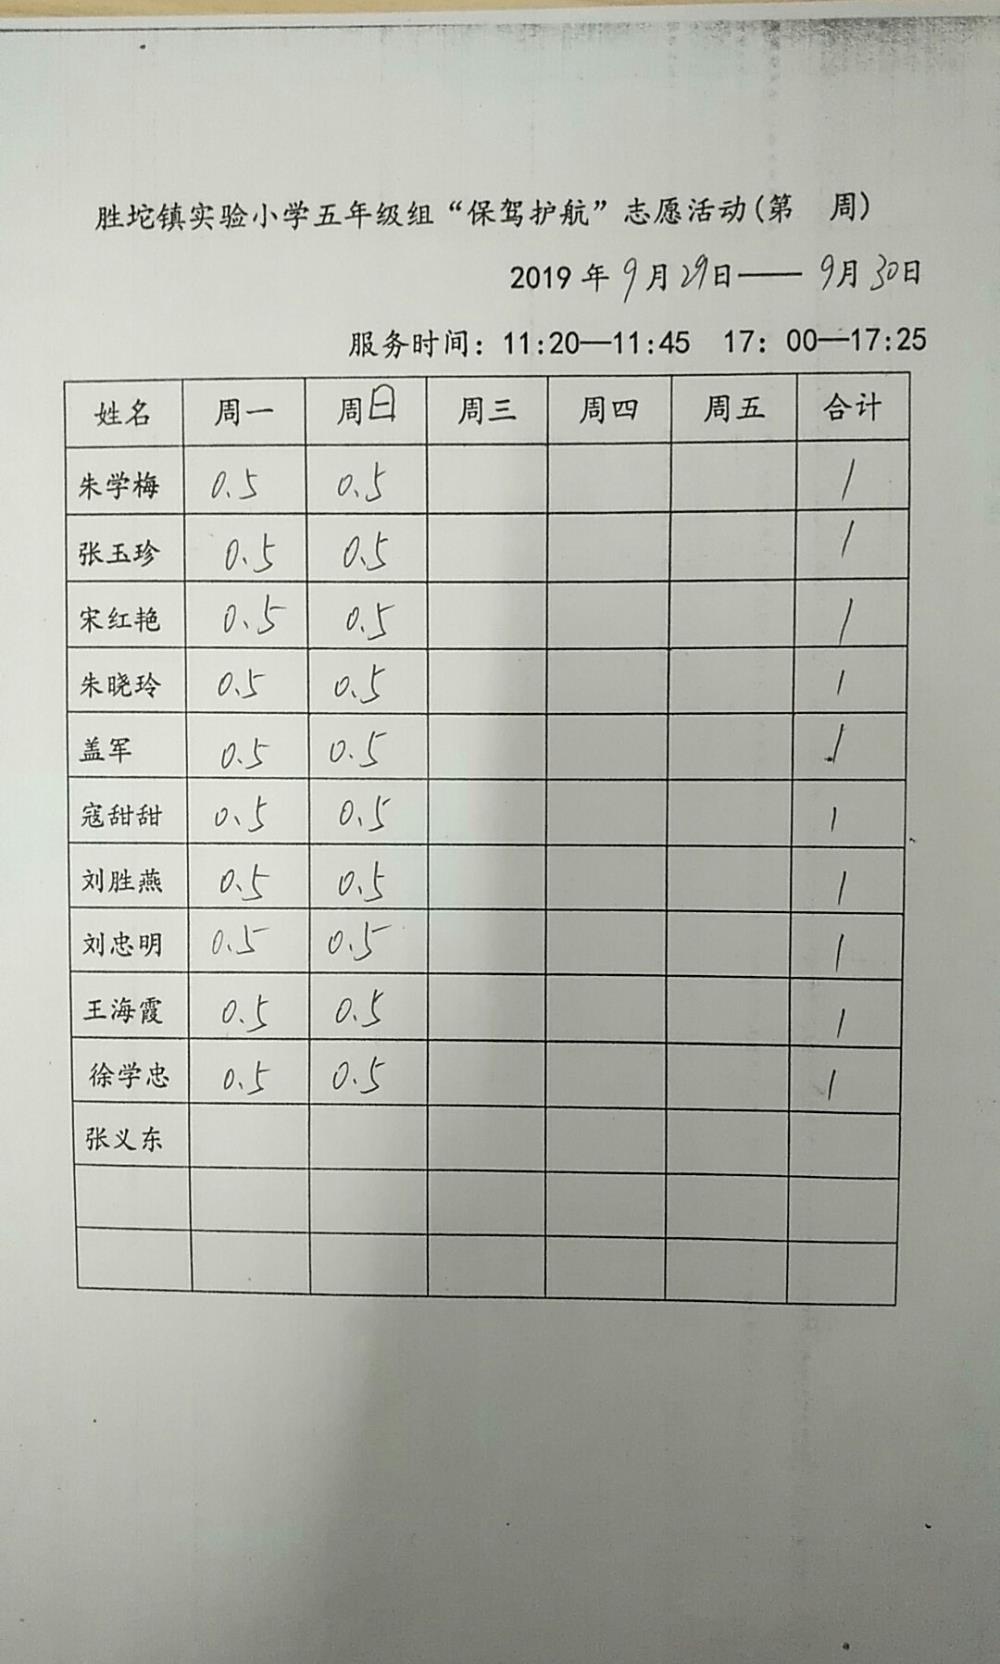 胜坨镇实验小学五年级组“保驾护航”志愿活动(第 周)
2019年9月29日——9月30日
服务时间：11:20—11:45 17：00—17:25
姓名 周一 周日 周三 周四 周五 合计
朱学梅 0.5 0.5 1
张玉珍 0.5 0.5 1
宋红艳 0.5 0.5 1
朱晓玲 0.5 0.5 1
盖军 0.5 0.5 1
寇甜甜 0.5 0.5 1
刘胜燕 0.5 0.5 1
刘忠明 0.5 0.5 1
王海霞 0.5 0.5 1
徐学忠 0.5 0.5 1
张义东